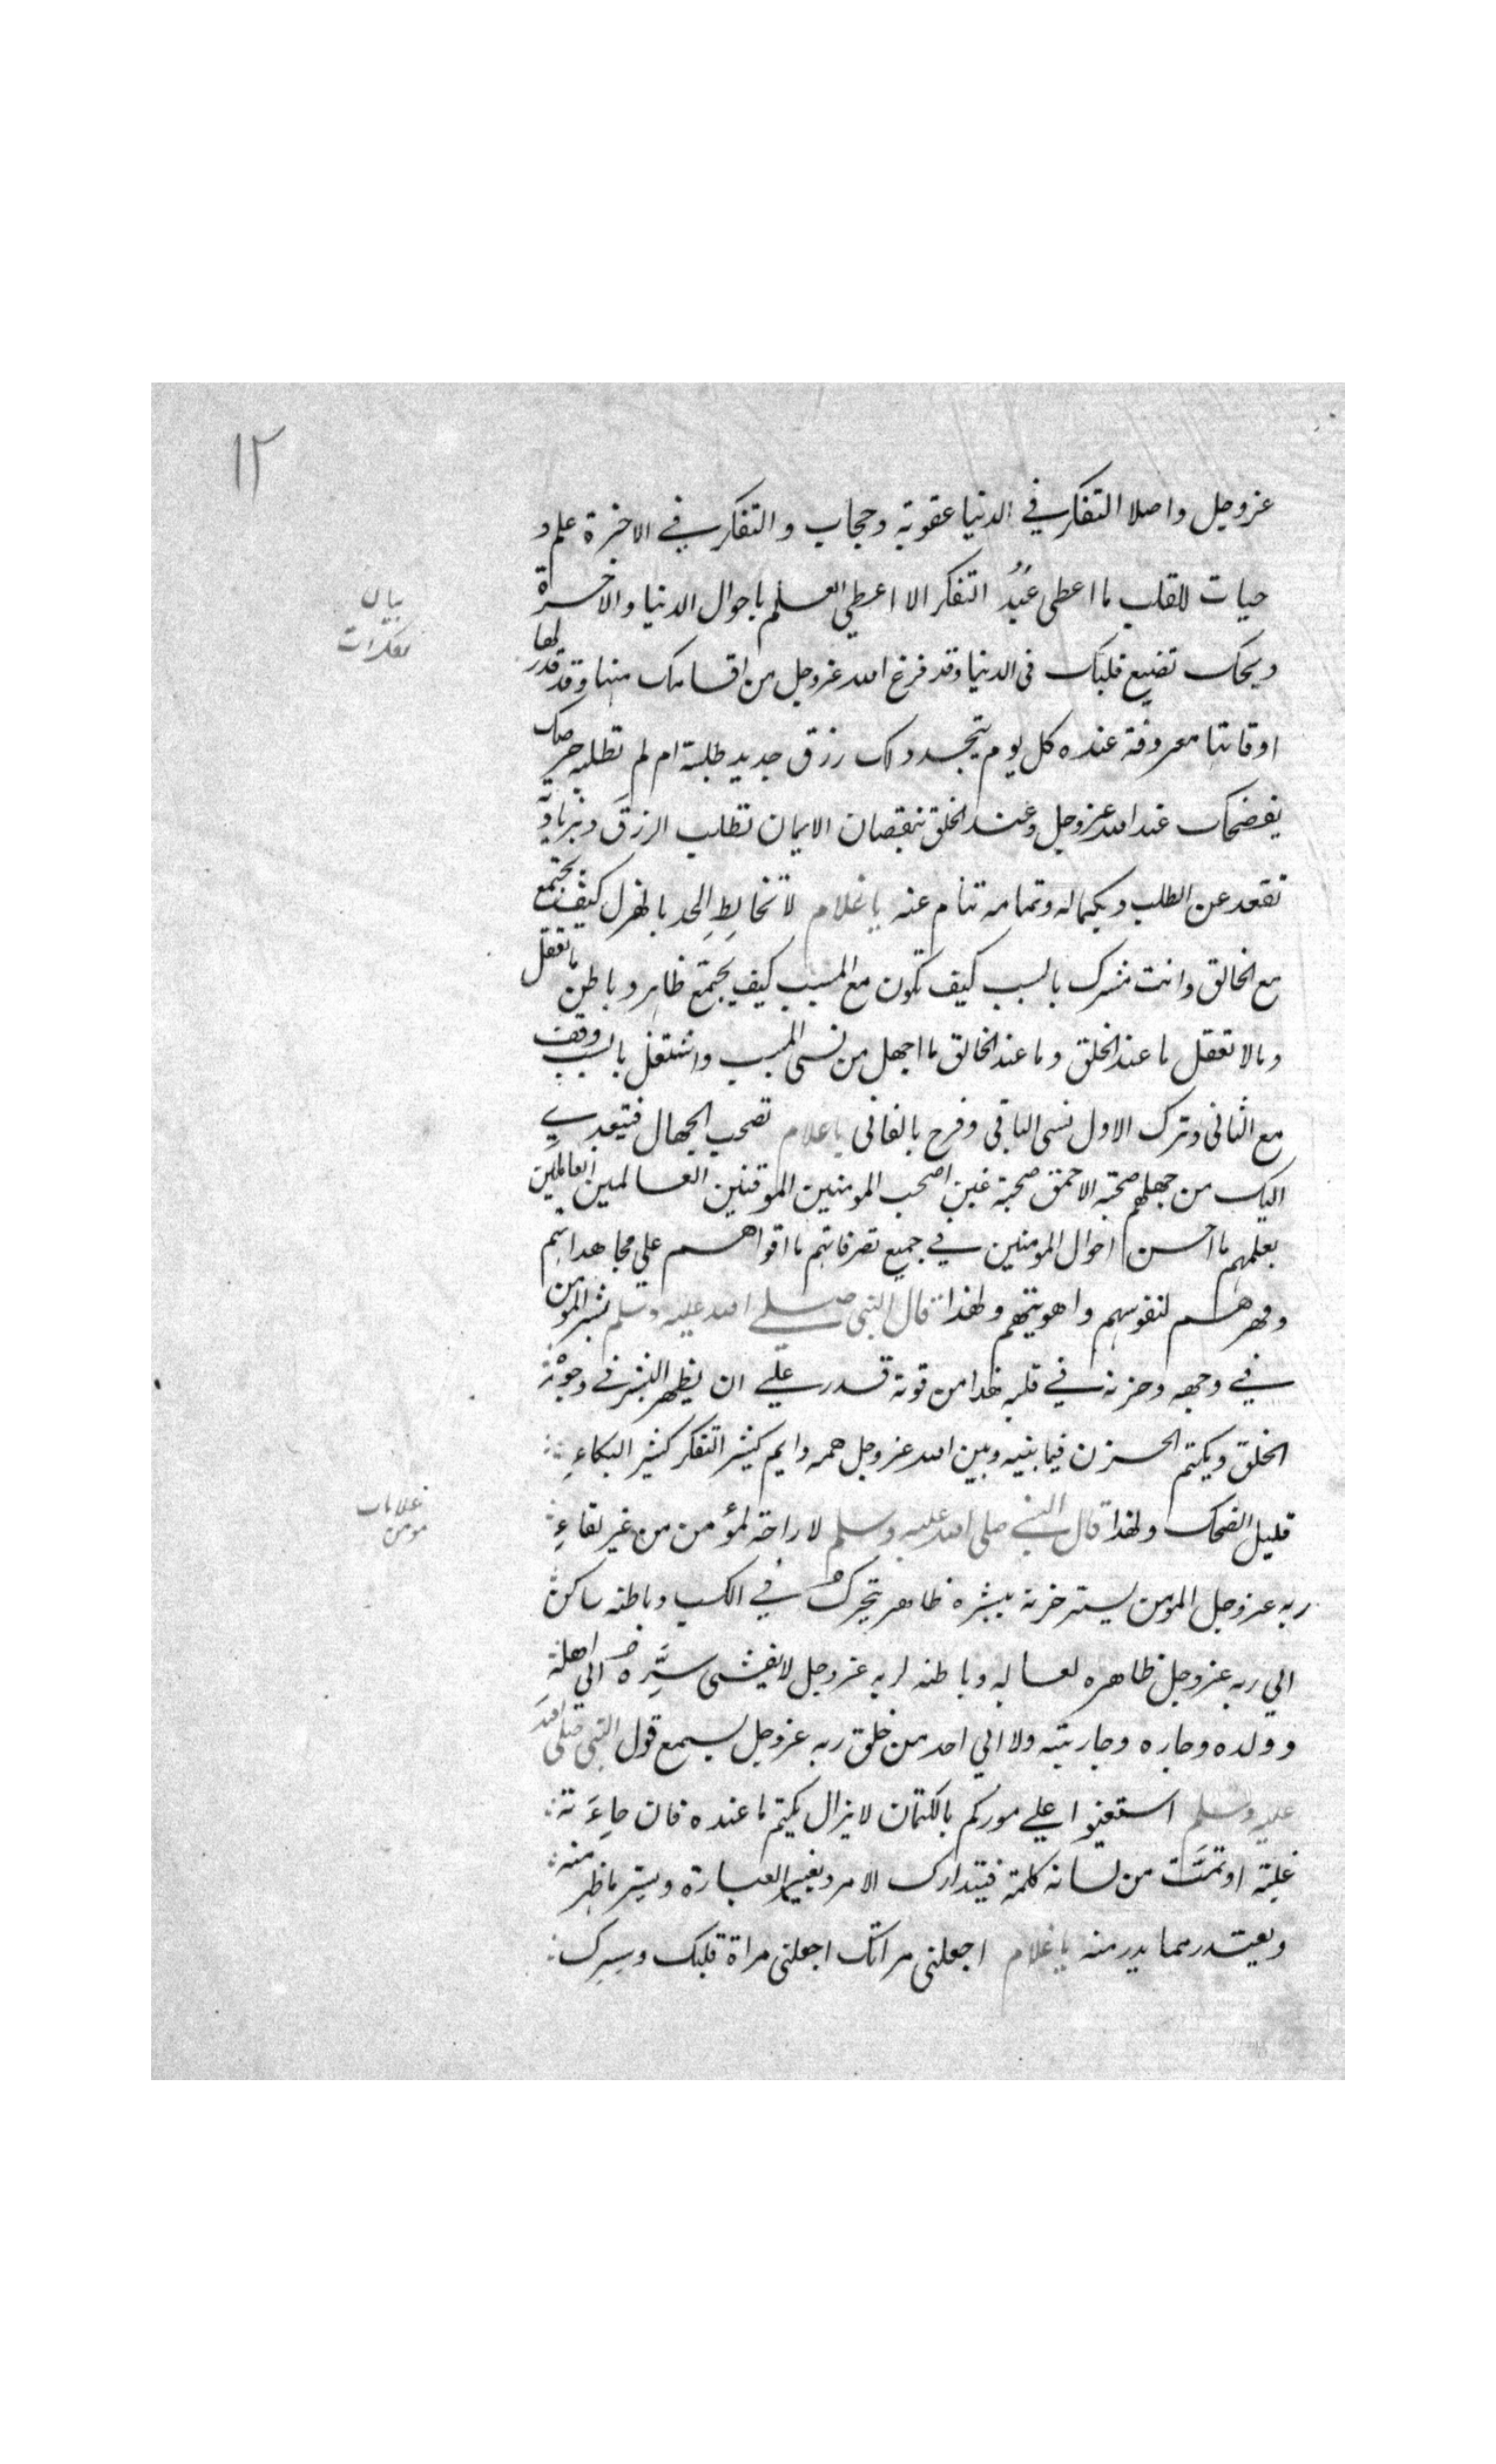 ١٢
عزوجل واصلا التفكر في الدنيا عقوبة وحجاب والتفكر في الاخرة علم و
حيات للقلب ما اعطى عَبْدُ التفكر الا اعطي العلم باحوال الدنيا والاخرة
بيان
تفكرات
ويحك تضيع قلبك فى الدنيا وقد فرغ الله عزوجل من اقسامك منها وقد قدر لها
اوقاتها معروفة عنده كل يوم يتجدد لك رزق جديد طلبته ام لم تطلبه حرصك
يفضحك عند الله عزوجل وعند الخلق بنقصان الايمان تطلب الرزق وبزيادته
تقعد عن الطلب وبكماله وتمامه تنام عنه يا غلام لا تخالطِ الجد بالهزل كيف يجتمع
مع الخالق وانت مشرك بالسبب كيف تكون مع المسبب كيف يجتمع ظاهر وباطن ما تعقل
وما لا تعقل ما عند الخلق وما عند الخالق ما اجهل من نسى المسبب واشتغل بالسبب وقف
مع الثانى وترك الاول نسى الباقى وفرح بالفانى يا غلام تصحب الجهال فيتعدي
اليك من جهلهم صحبة الاحمق صحبة غبن اصحب المومنين الموقنين العالمين العاملين
بعلمهم ما احسن احوال المومنين في جميع تصرفاتهم ما اقواهم علي مجاهداتهم
وقهرهم لنفوسهم واهويتهم ولهذا قال النبي صلي الله عليه وسلم بشر المومن
في وجهه وحزنه في قلبه هذا من قوته قدر علي ان يظهر البشر في وجوه
الخلق ويكتم الحزن فيما بينه وبين الله عزوجل همه دايم كثير التفكر كثير البكاءِ
قليل الضحك ولهذا قال النبي صلى الله عليه وسلم لا راحة لمؤمن من غير لقاءِ
علامات
مومن
ربه عزوجل المومن يستر حزنه ببشره ظاهره يتحرك في الكسب وباطنه ساكن
الي ربه عزوجل ظاهره لعياله وباطنه لربه عزوجل لا يفشى سِرَّه الي اهله
وولده وجاره وجاريته ولا الي احد من خلق ربه عزوجل يسمع قول النبى صلى الله
عليه وسلم استعينوا علي موركم بالكتمان لا يزال يكتم ما عنده فان جاءَته
غلبة او تمت من لسانه كلمة فيتدارك الامر ويغير العبارة ويستر ما ظهر منه
ويعتذر مما بدر منه يا غلام اجعلنى مراتك اجعلنى مراة قلبك وسرك